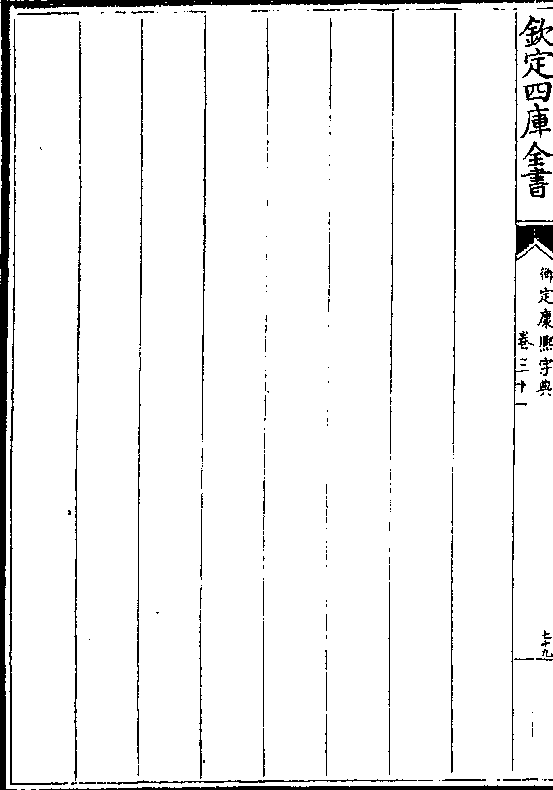 欽定四庫全書
御定康熙字典
卷三十一
七十九